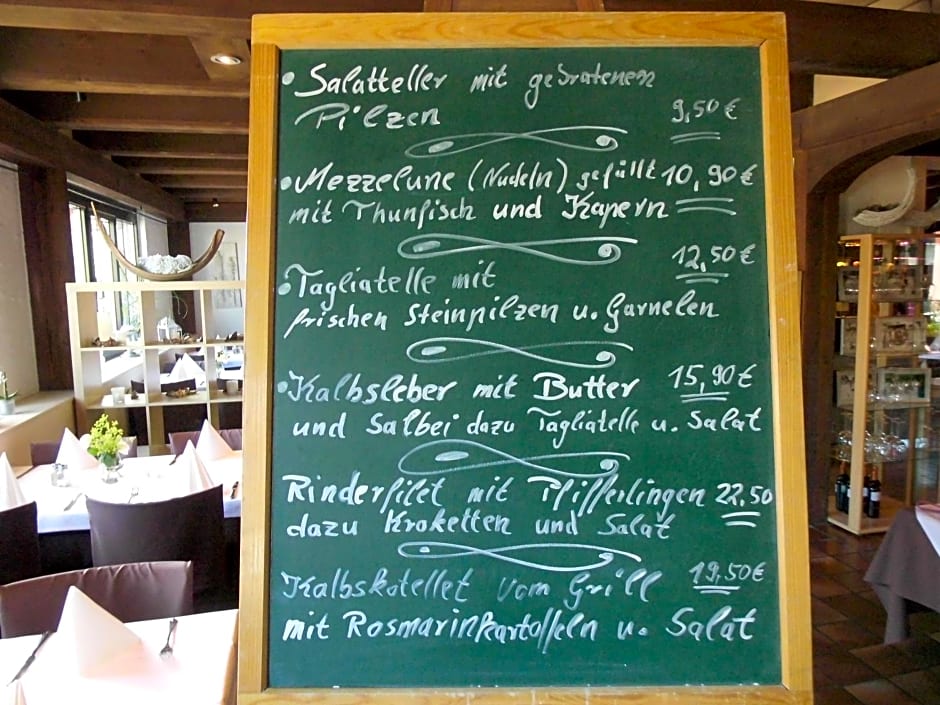 • Salatteller mit gebratenem
Pilzen 9,50 €
• Mezzelune (Nudeln) gefüllt 10,90 €
mit Thunfisch und Kapern
12,50 €
• Tagliatelle mit
frischen Steinpilzen u. Garnelen
• Kalbsleber mit Butter 15,90 €
und Salbei dazu Tagliatelle u. Salat
Rinderfilet mit Pfifferlingen 22,50
dazu Kroketten und Salat
Kalbskotellet vom Grill 19,50 €
mit Rosmarinkartoffeln u. Salat